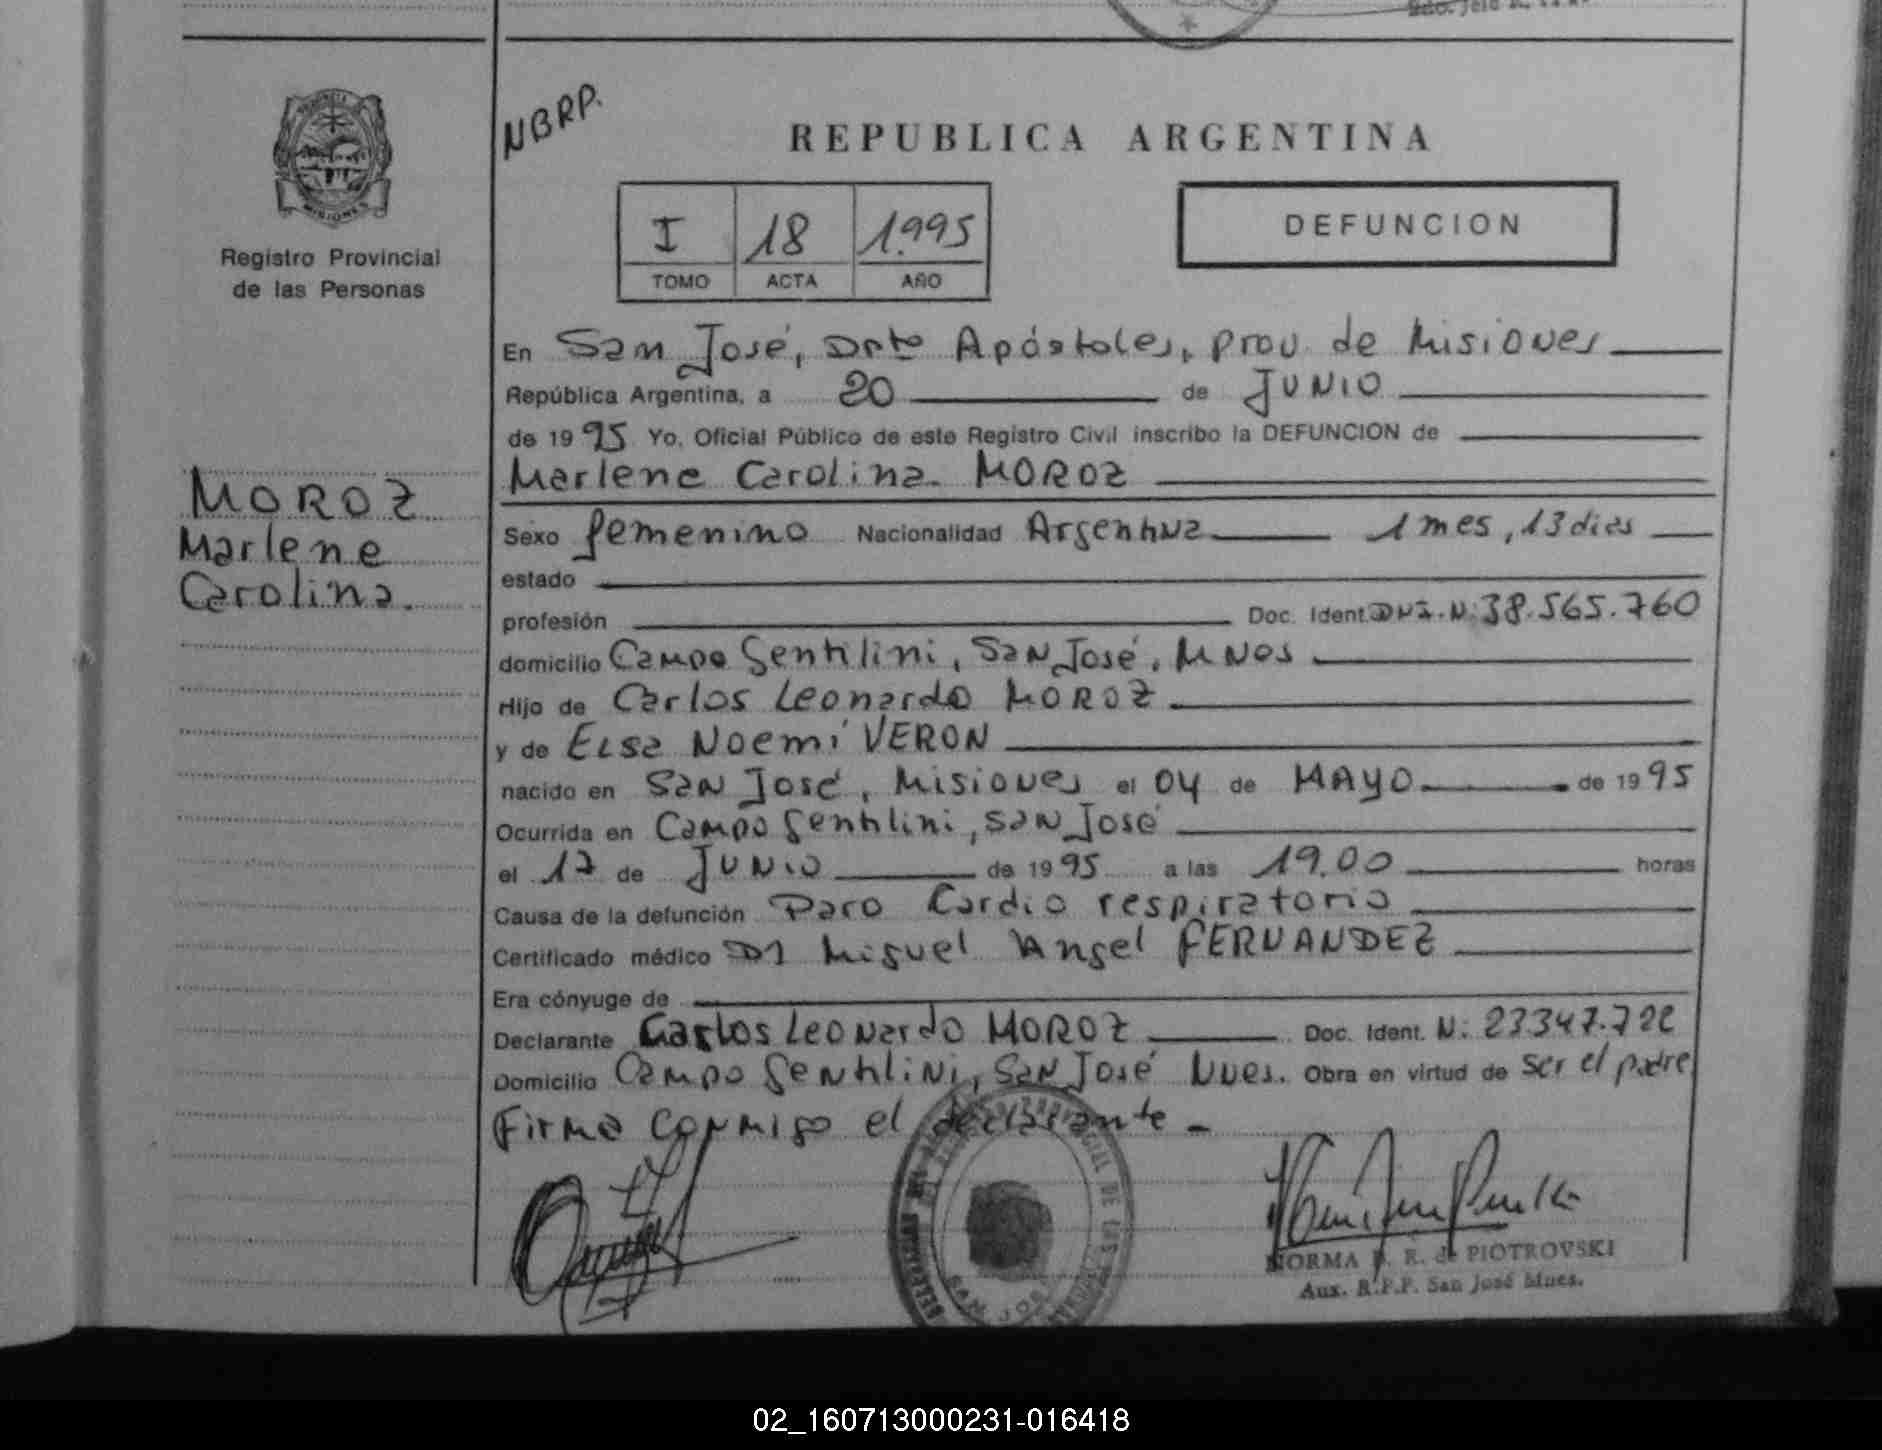 NBRP.
REPUBLICA ARGENTINA
PROVINCIA
MISIONES
I 18 1.995
TOMO ACTA AÑO
DEFUNCION
Registro Provincial
de las Personas
En San José, Dpto Apóstoles, prov. de Misiones
República Argentina, a 20 de JUNIO
de 1995 Yo, Oficial Público de este Registro Civil inscribo la DEFUNCION de
Marlene Carolina MOROZ
MOROZ
Marlene
Carolina.
Sexo femenino Nacionalidad Argentina 1 mes, 13 dias
estado
profesión Doc. Ident. DNI. N: 38.565.760
domicilio Campo Gentilini, San José, Mnes
Hijo de Carlos Leonardo MOROZ
y de Elsa Noemí VERON
nacido en San José, Misiones el 04 de MAYO de 1995
Ocurrida en Campo Gentilini, San José
el 17 de JUNIO de 1995 a las 19.00 horas
Causa de la defunción Paro Cardio respiratorio
Certificado médico Dr Miguel Angel FERNANDEZ
Era cónyuge de
Declarante Carlos Leonardo MOROZ Doc. Ident. N: 23.347.722
Domicilio Campo Gentilini, San José Mnes. Obra en virtud de ser el padre
Firma conmigo el declarante -
SAN JOSE
NORMA R. de PIOTROVSKI
Aux. R.P.P. San José Mnes.
02_160713000231-016418